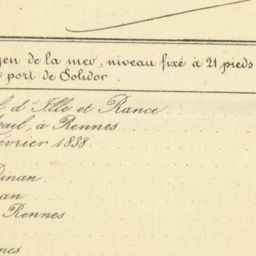 yen de la mer, niveau fixé à 21 pieds
port de Solidor.
d'Ille et Rance.
à Rennes
évrier 1838.
Dinan.
Rennes